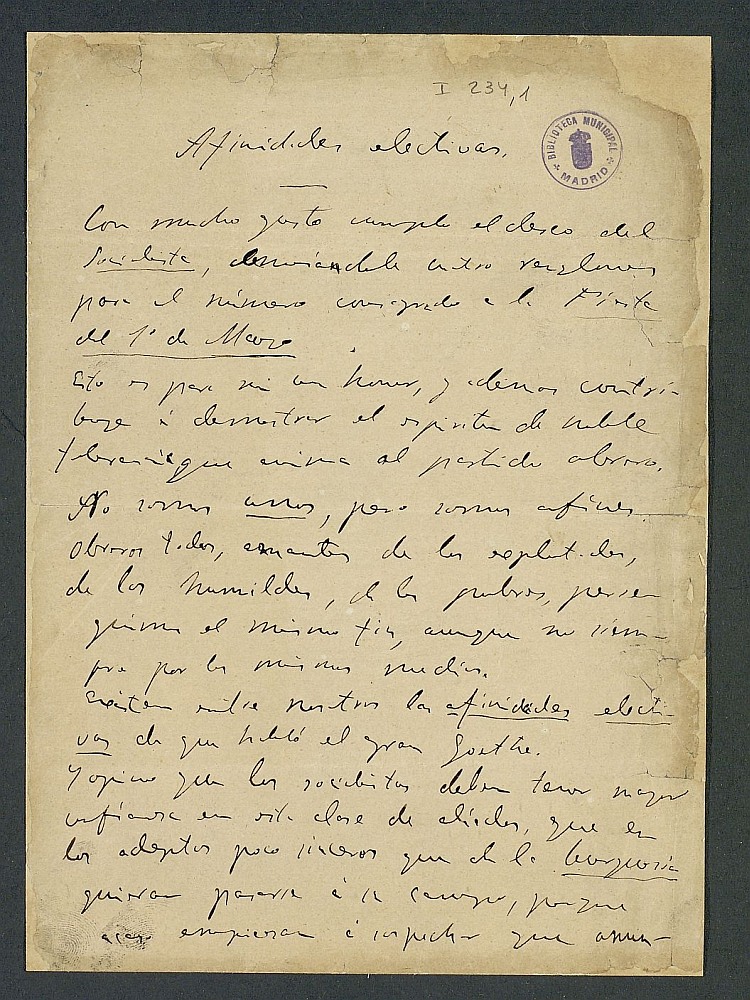 I 234,1
BIBLIOTECA MUNICIPAL
MADRID
Afinidades electivas.
Con mucho gusto cumplo el deseo del
Socialista, enviándole cuatro renglones
para el número consagrado a la Fiesta
del 1º de Mayo
Esto es para mi un honor, y ademas contri-
buye á demostrar el espiritu de noble
tolerancia que anima al partido obrero.
No somos unos, pero somos afines.
Obreros todos, amantes de los explotados,
de los humildes, de los pobres, perse
guimos el mismo fin, aunque no siem-
pre por los mismos medios.
Existen entre nosotros las afinidades electi-
vas de que habló el gran Goethe.
Y opino que los socialistas deben tener mayor
confianza en esta clase de aliados, que en
los adeptos poco sinceros que de la burguesía
quieran pasarse á su campo, porque
acaso empiezan á sospechar que